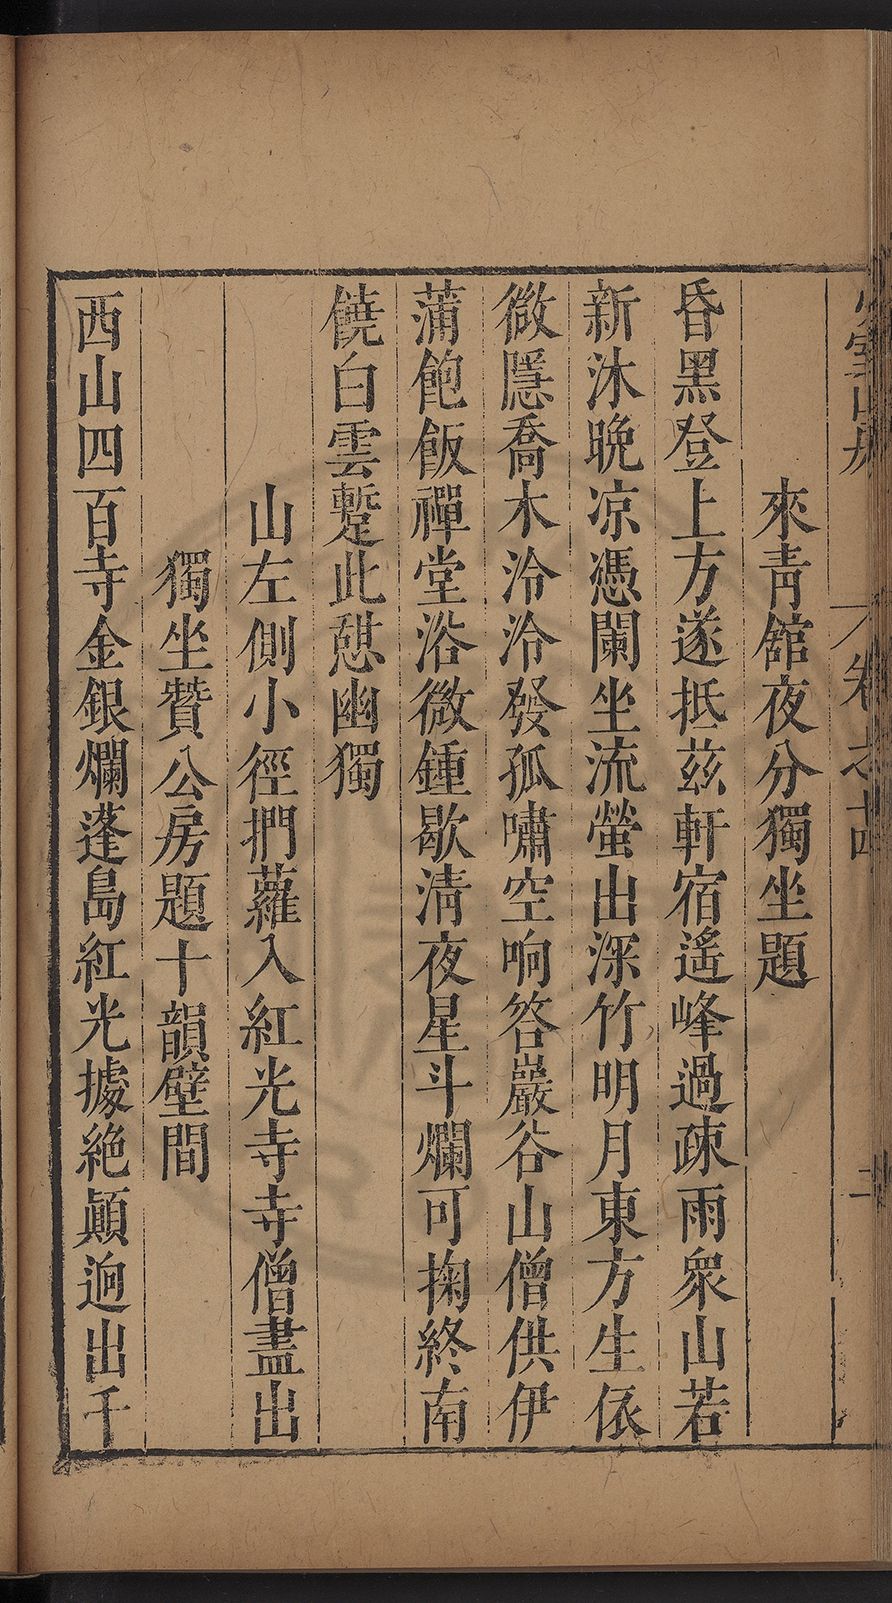 卷之十四
來青館夜分獨坐題
昏黑登上方遂抵茲軒宿遙峰過疎雨衆山若
新沐晚凉憑闌坐流螢出深竹明月東方生依
微隱喬木泠泠發孤嘯空响答巖谷山僧供伊
蒲飽飯禪堂浴微鍾歇清夜星斗爛可掬終南
饒白雲蹔此憇幽獨
山左側小徑捫蘿入紅光寺寺僧盡出
獨坐贊公房題十韻壁間
西山四百寺金銀爛蓬島紅光據絶顛逈出千